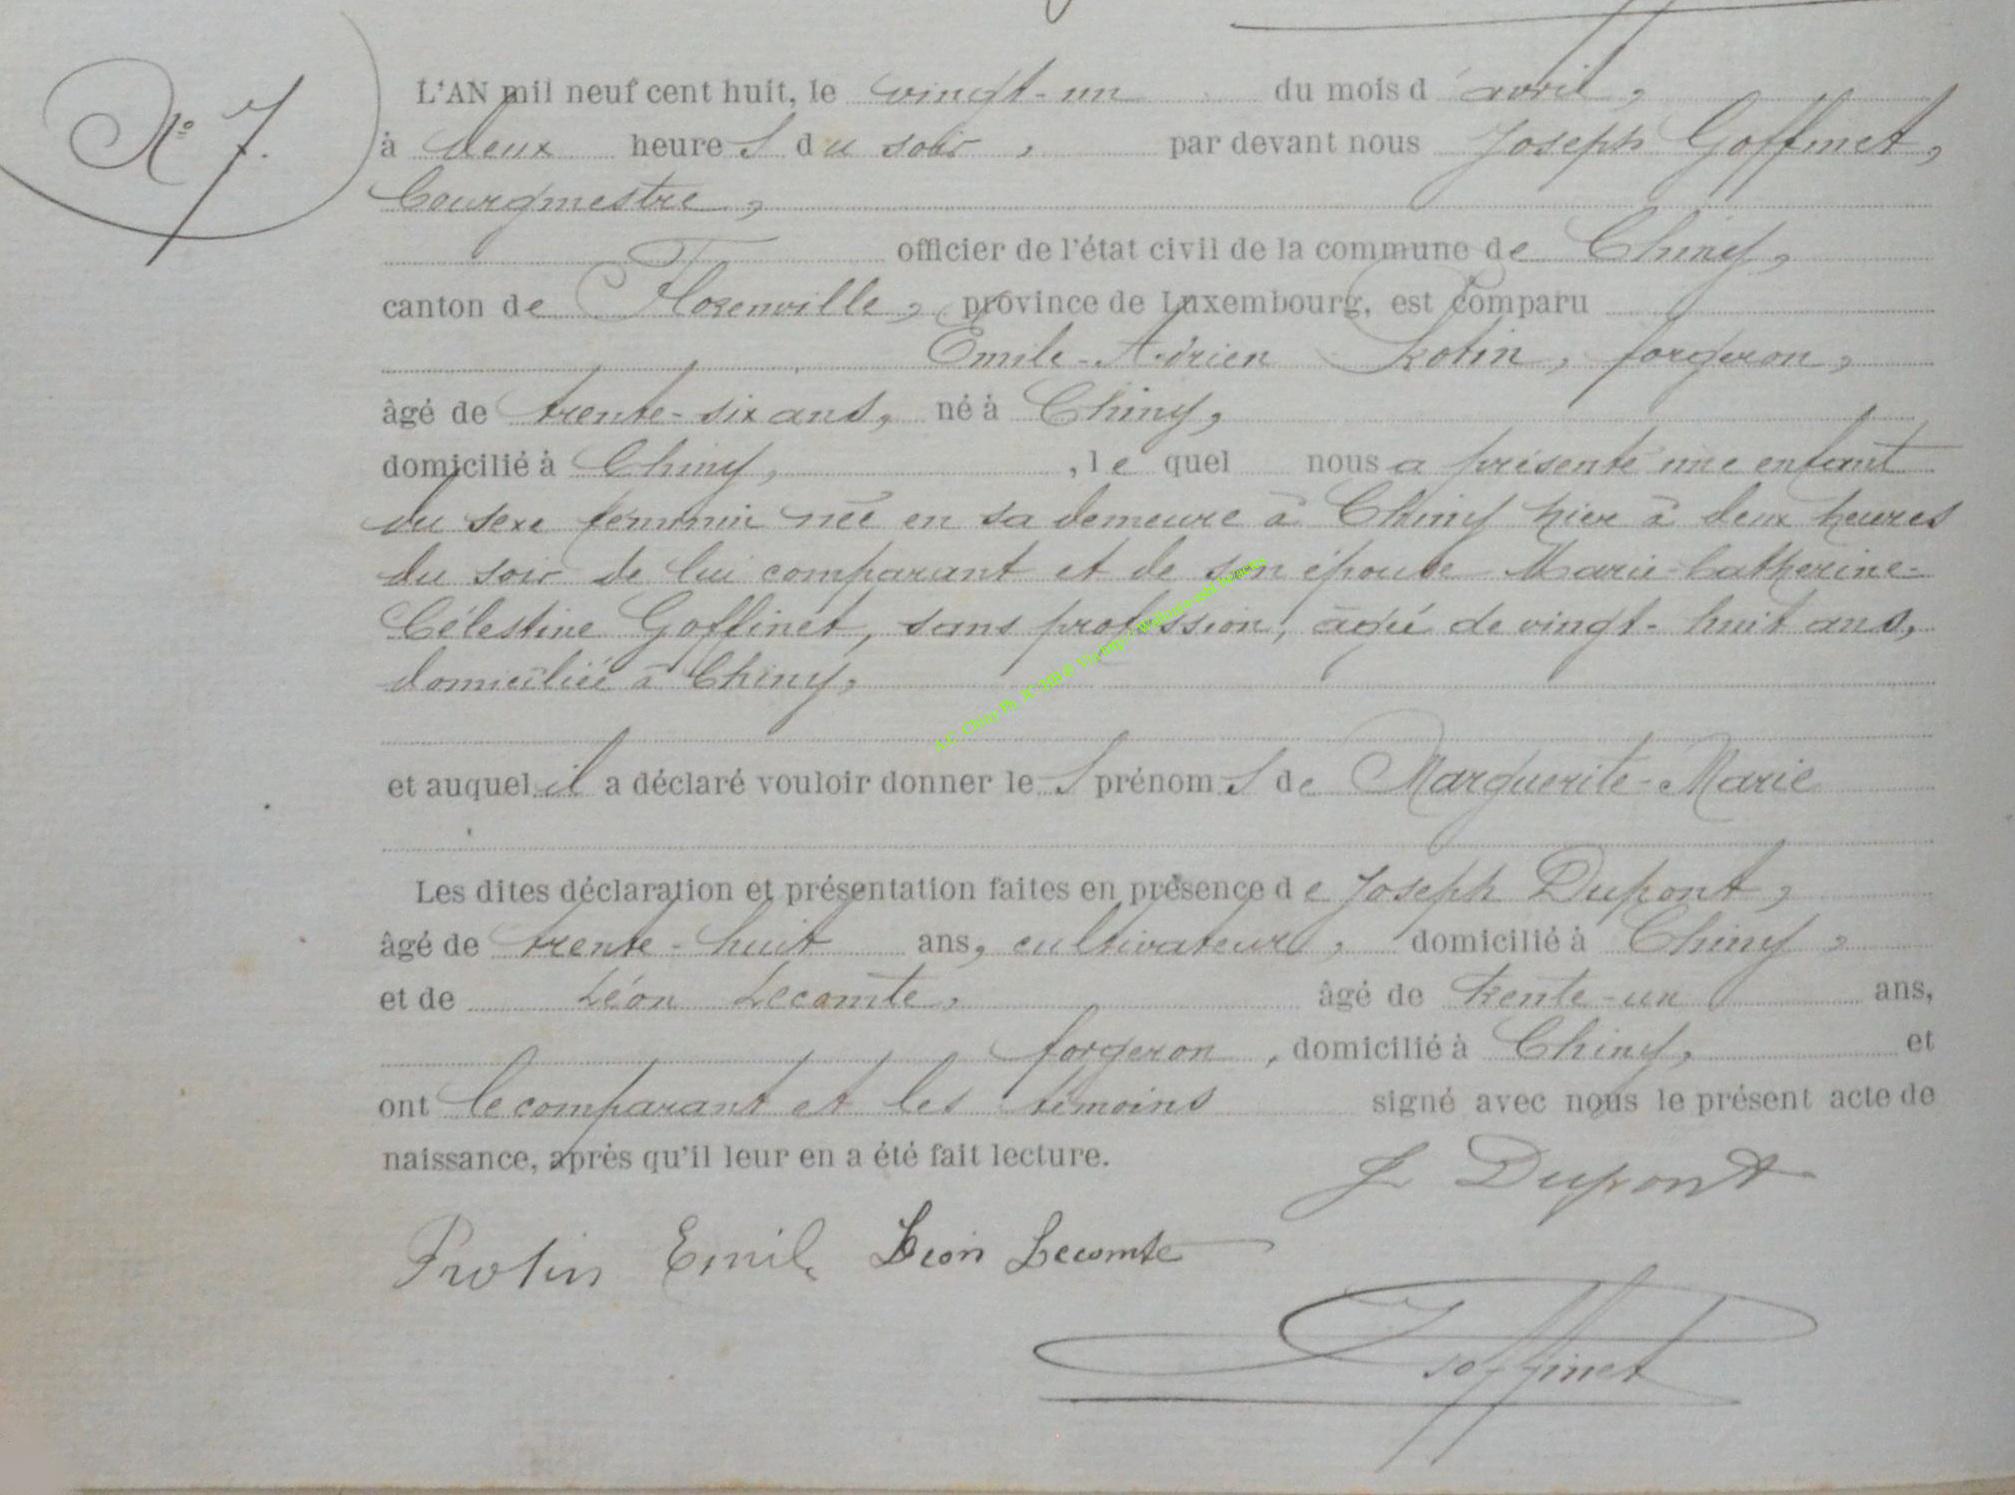 N° 7.
L'AN mil neuf cent huit, le vingt-un du mois d'avril,
à deux heures du soir, par devant nous Joseph Goffinet,
bourgmestre,
officier de l'état civil de la commune de Chiny,
canton de Florenville, province de Luxembourg, est comparu
Emile-Adrien Rotin, forgeron,
âgé de trente-six ans, né à Chiny,
domicilié à Chiny, , le quel nous a présenté une enfant
du sexe féminin née en sa demeure à Chiny hier à deux heures
du soir de lui comparant et de son épouse Marie Catherine-
Célestine Goffinet, sans profession, âgée de vingt-huit ans,
domiciliée à Chiny,
et auquel il a déclaré vouloir donner les prénoms de Marguerite-Marie
Les dites déclaration et présentation faites en présence de Joseph Dupont,
âgé de trente-huit ans, cultivateur, domicilié à Chiny,
et de Léon Lecomte, âgé de trente-un ans,
forgeron, domicilié à Chiny, et
ont le comparant et les témoins signé avec nous le présent acte de
naissance, après qu'il leur en a été fait lecture.
J Dupont
Protin Emile Léon Lecomte
Goffinet
A.C. Chiny Ph.